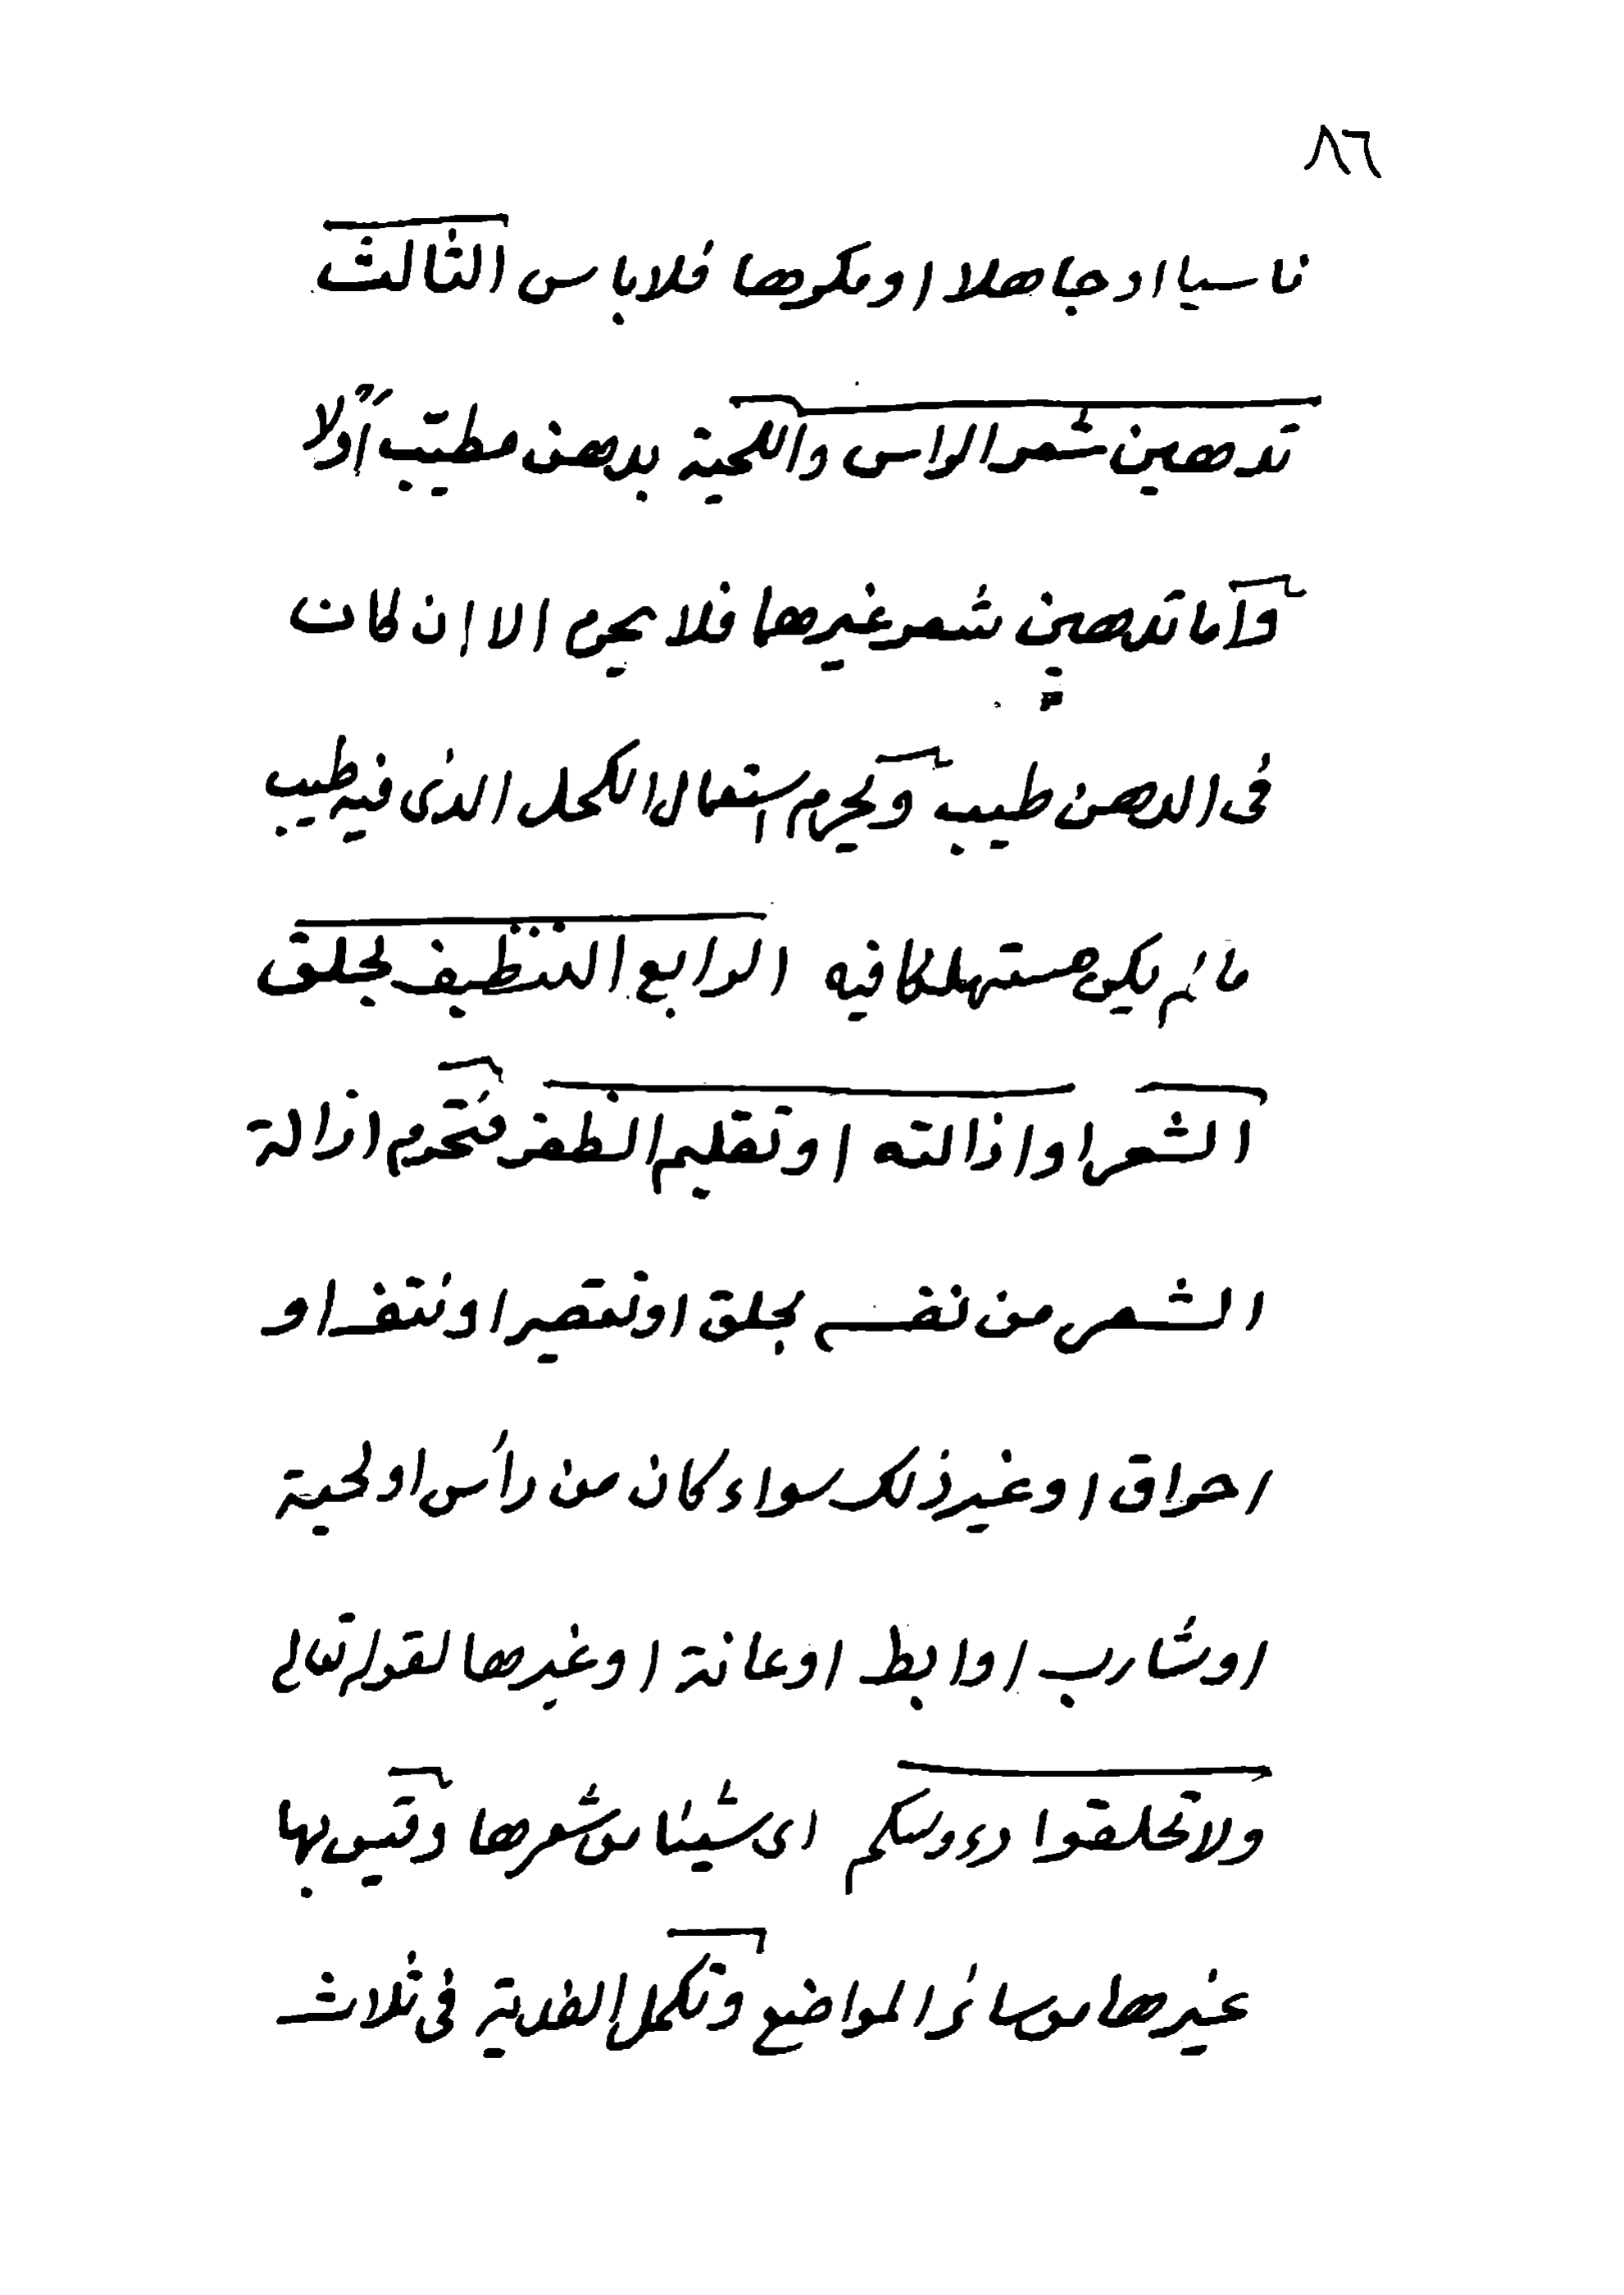 ٨٦
ناسيا او جاهلا او مكرها فلا باس الثالث
تدهين شعر الراس واللحية بدهن مطيّب اوّلا
وأما تدهين شعر غيرهما فلا يحرم الا ان كان
فى الدهن طيب ويحرم استعمال الكحل الذى فيه طيب
ما لم يكن مستهلكا فيه الرابع التنظيف بحلق
الشعر او ازالته او تقليم الظفر فتحرم ازالة
الشعر من نفسه بحلق او تقصير او نتف او
احراق او غير ذلك سواء كان من رأس او لحية
او شارب او ابط او عانة او غيرها لقوله تعالى
ولا تحلقوا رءوسكم اى شيئا من شعرها وقيس بها
غيرها من سائر المواضع وتكمل الفدية فى ثلاث